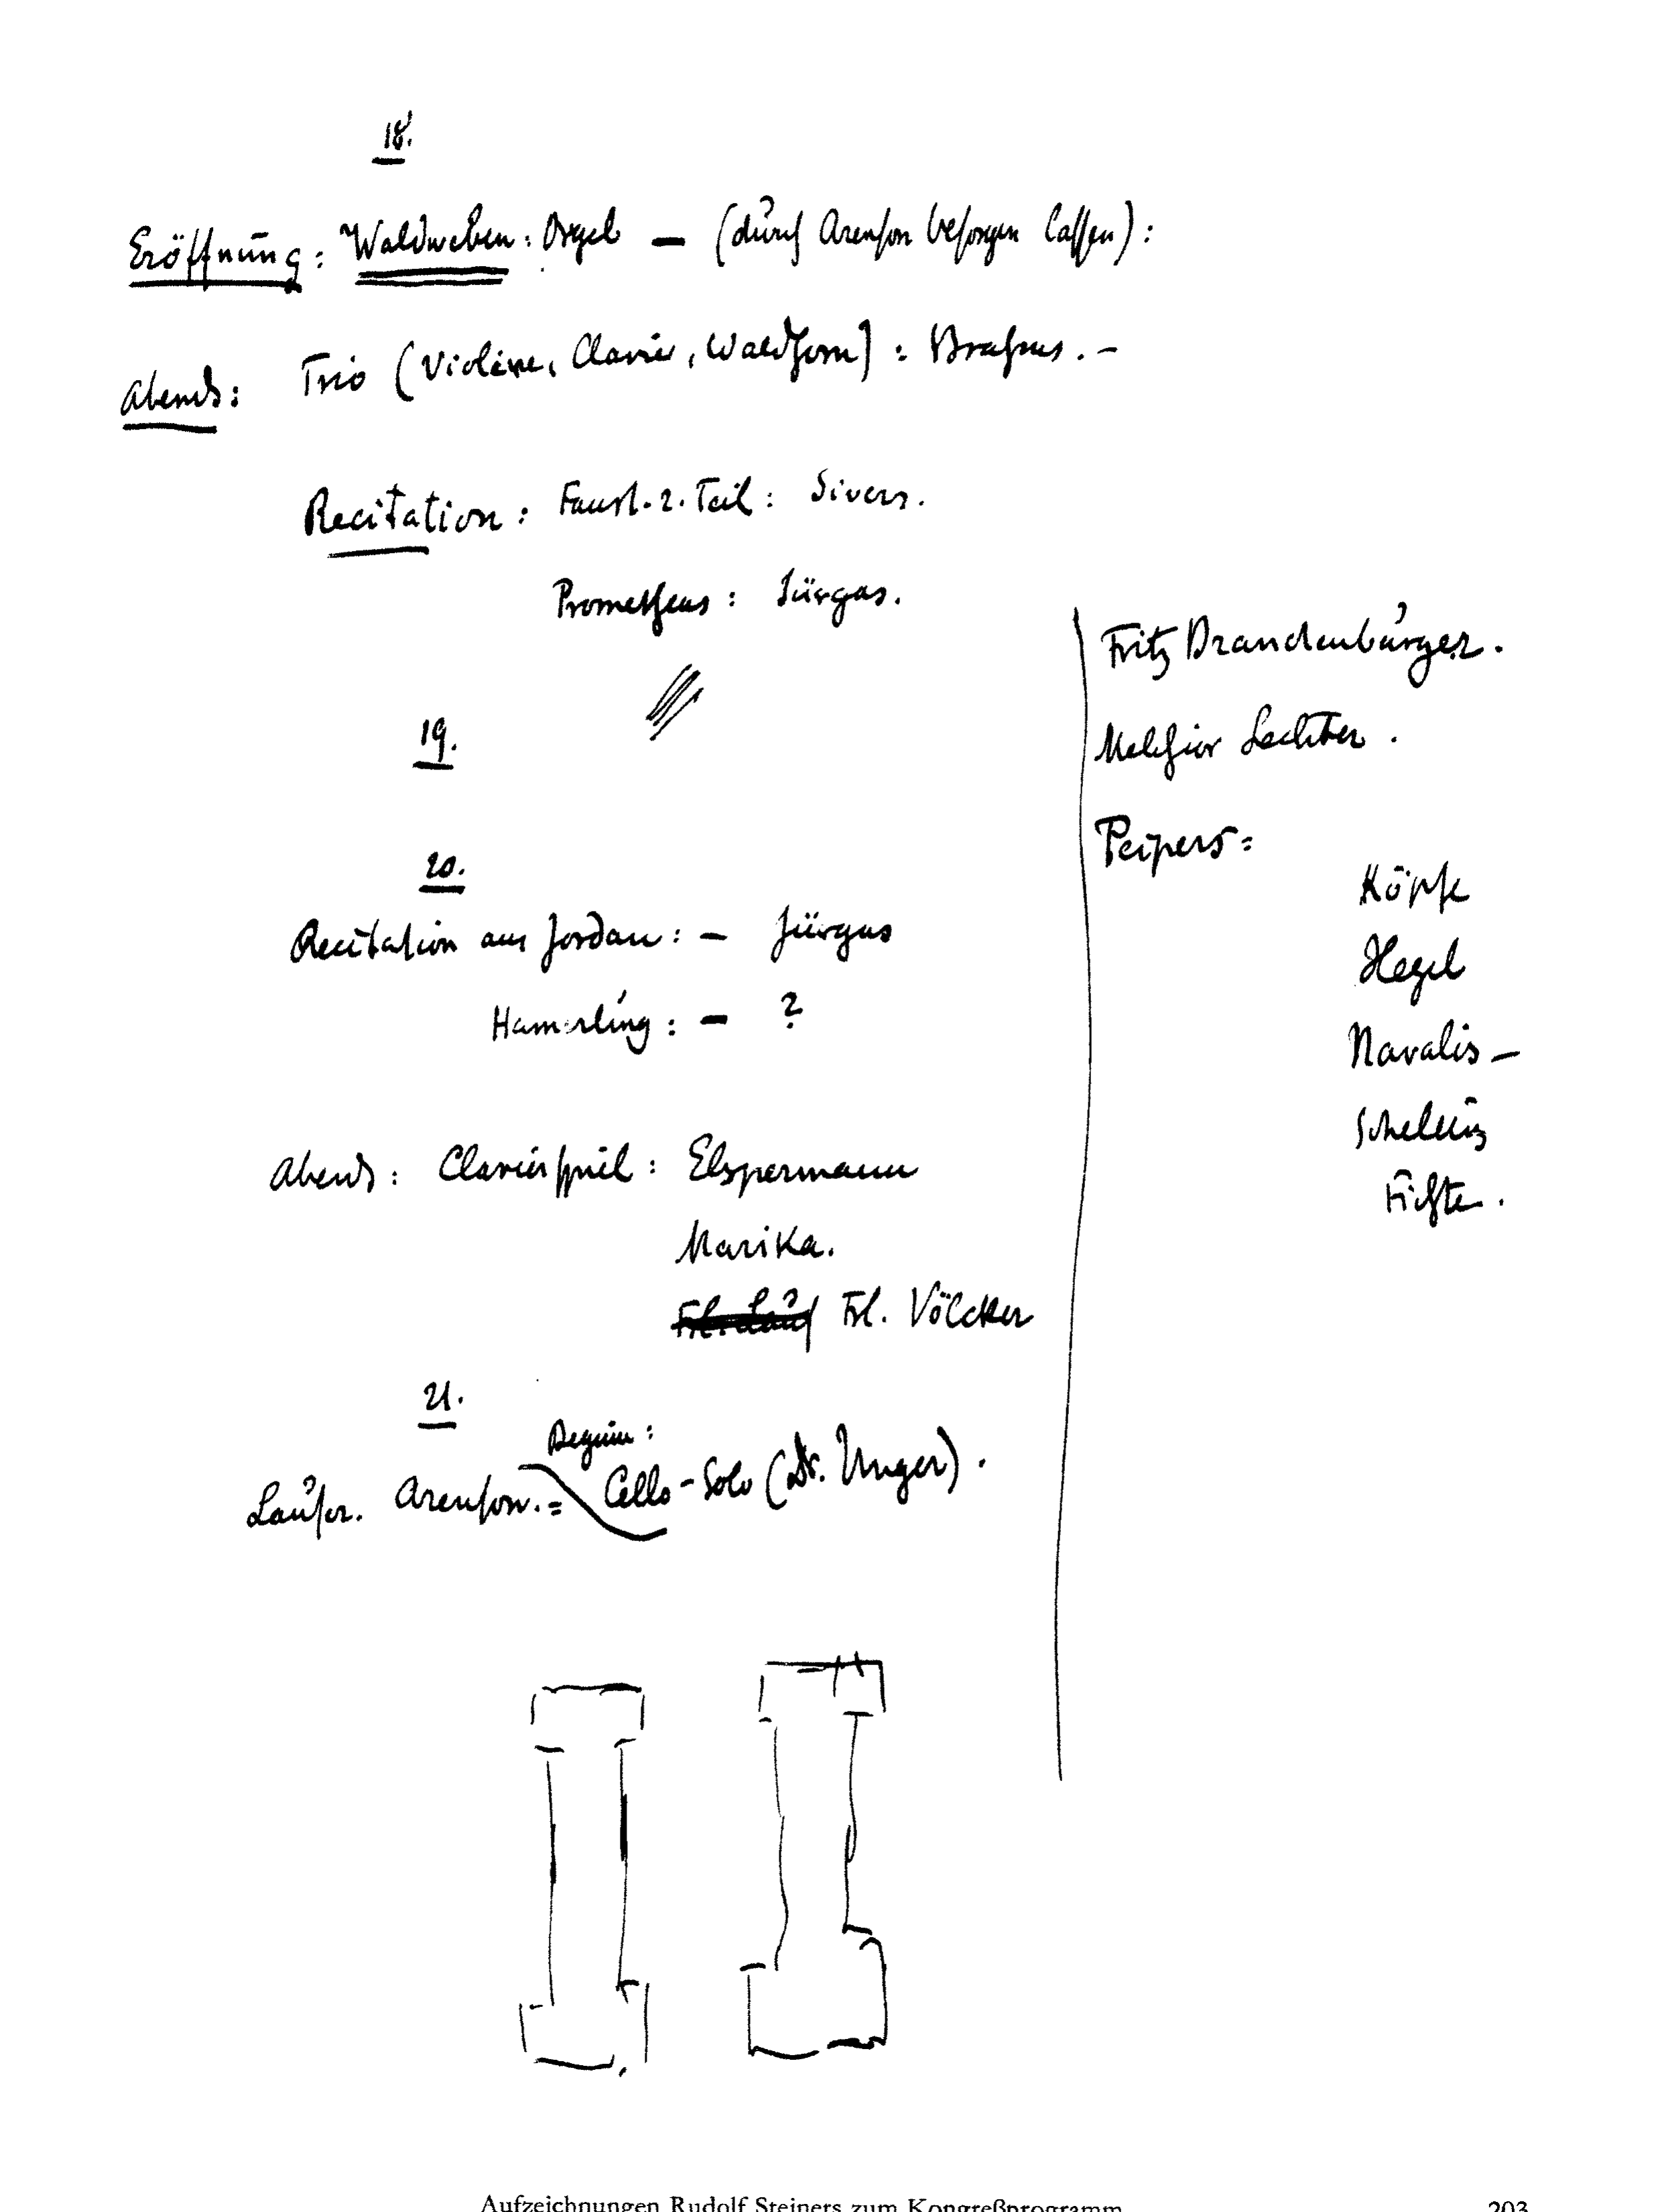 18.
Eröffnung: Waldweben: Orgel — (durch Arenson besorgen lassen):
Abends: Trio (Violine, Clavier, Waldhorn): Brahms. –
Recitation: Faust. 2. Teil: Sivers.
Prometheus: Jürgas.
19.
20.
Recitation aus Jordan: — Jürgas
Hamerling: — ?
Abends: Clavierspiel: Elspermann
Marika.
Frl. Völcker
21.
Beginn:
Laufer. Arenson. = Cello-Solo (Dr. Unger).
Fritz Brandenburger.
Melchior Lechter.
Peipers =
Köpfe
Hegel
Novalis –
Schelling
Fichte.
Aufzeichnungen Rudolf Steiners zum Kongreßprogramm
203